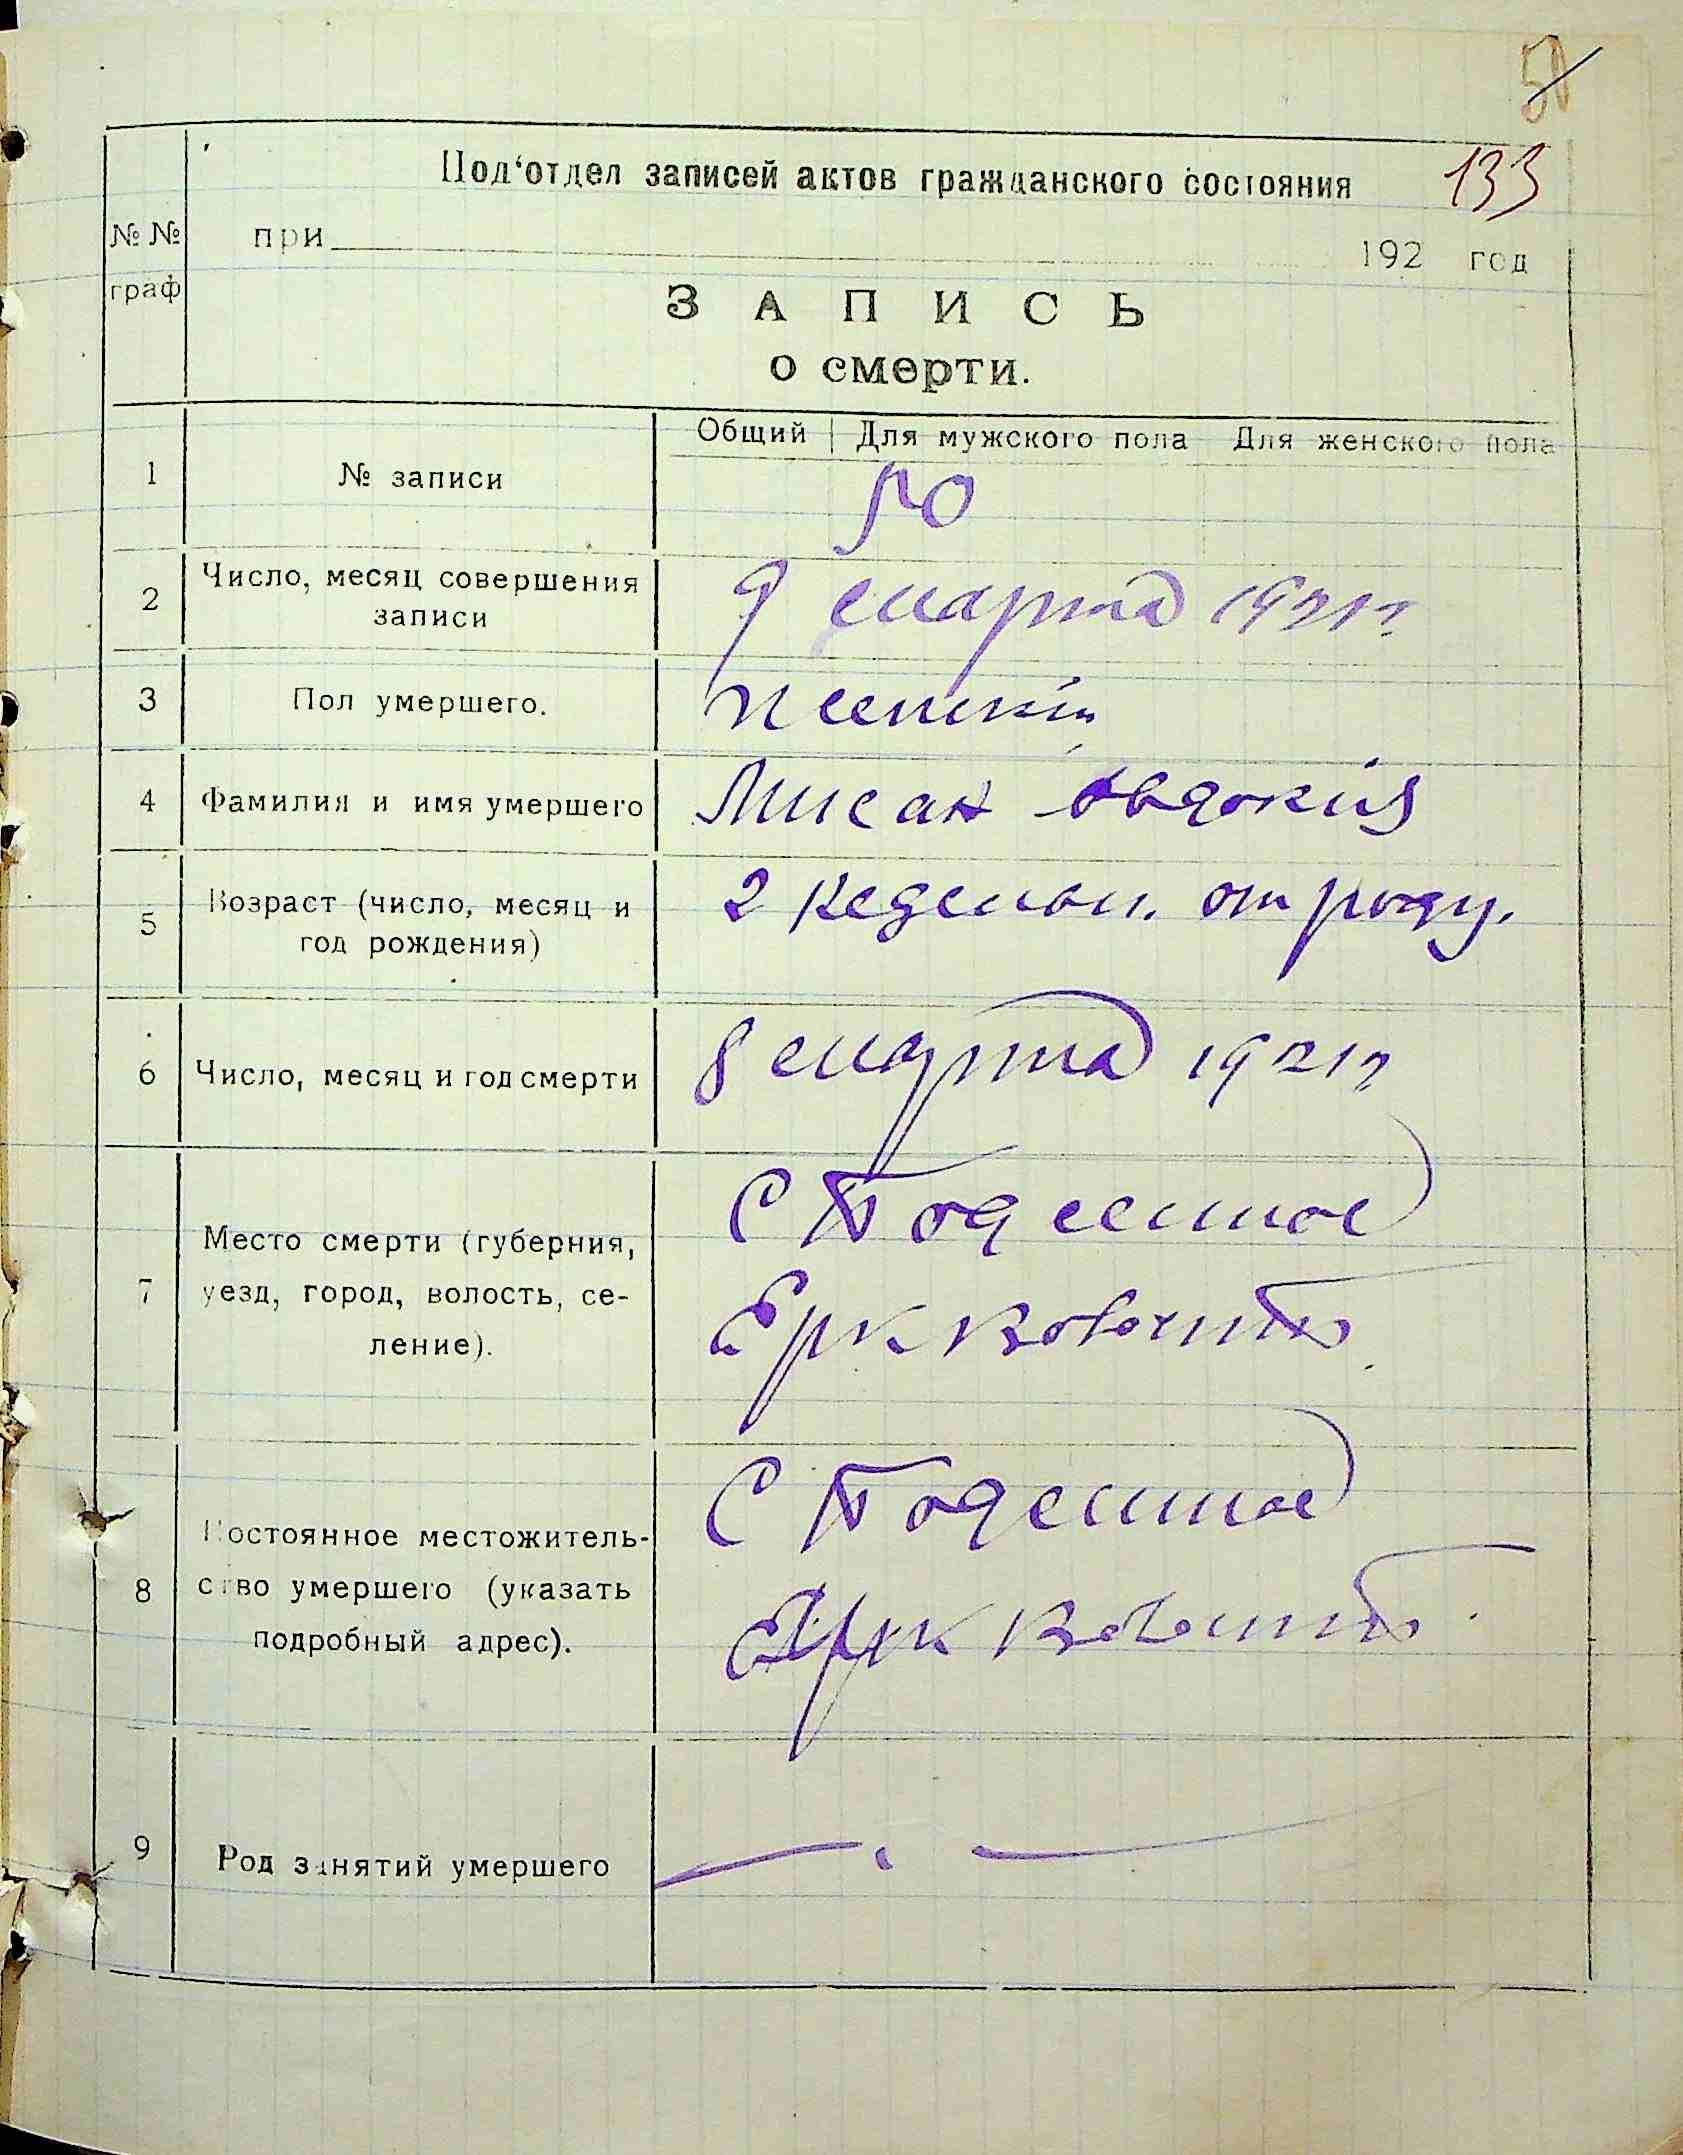 50
133
Под‘отдел записей актов гражданского состояния
№ №
граф
при 192 год
ЗАПИСЬ
о смерти.
Общий Для мужского пола Для женского пола
1 № записи 50
2 Число, месяц совершения
записи
9 марта 1921 г
3 Пол умершего. женский
4 Фамилия и имя умершего Мисан Овдокия
5 Возраст (число, месяц и
год рождения)
2 недельн. от роду.
6 Число, месяц и год смерти 8 марта 1921 г
7 Место смерти (губерния,
уезд, город, волость, се-
ление).
С
8 Постоянное местожитель-
ство умершего (указать
подробный адрес).
С
9 Род занятий умершего